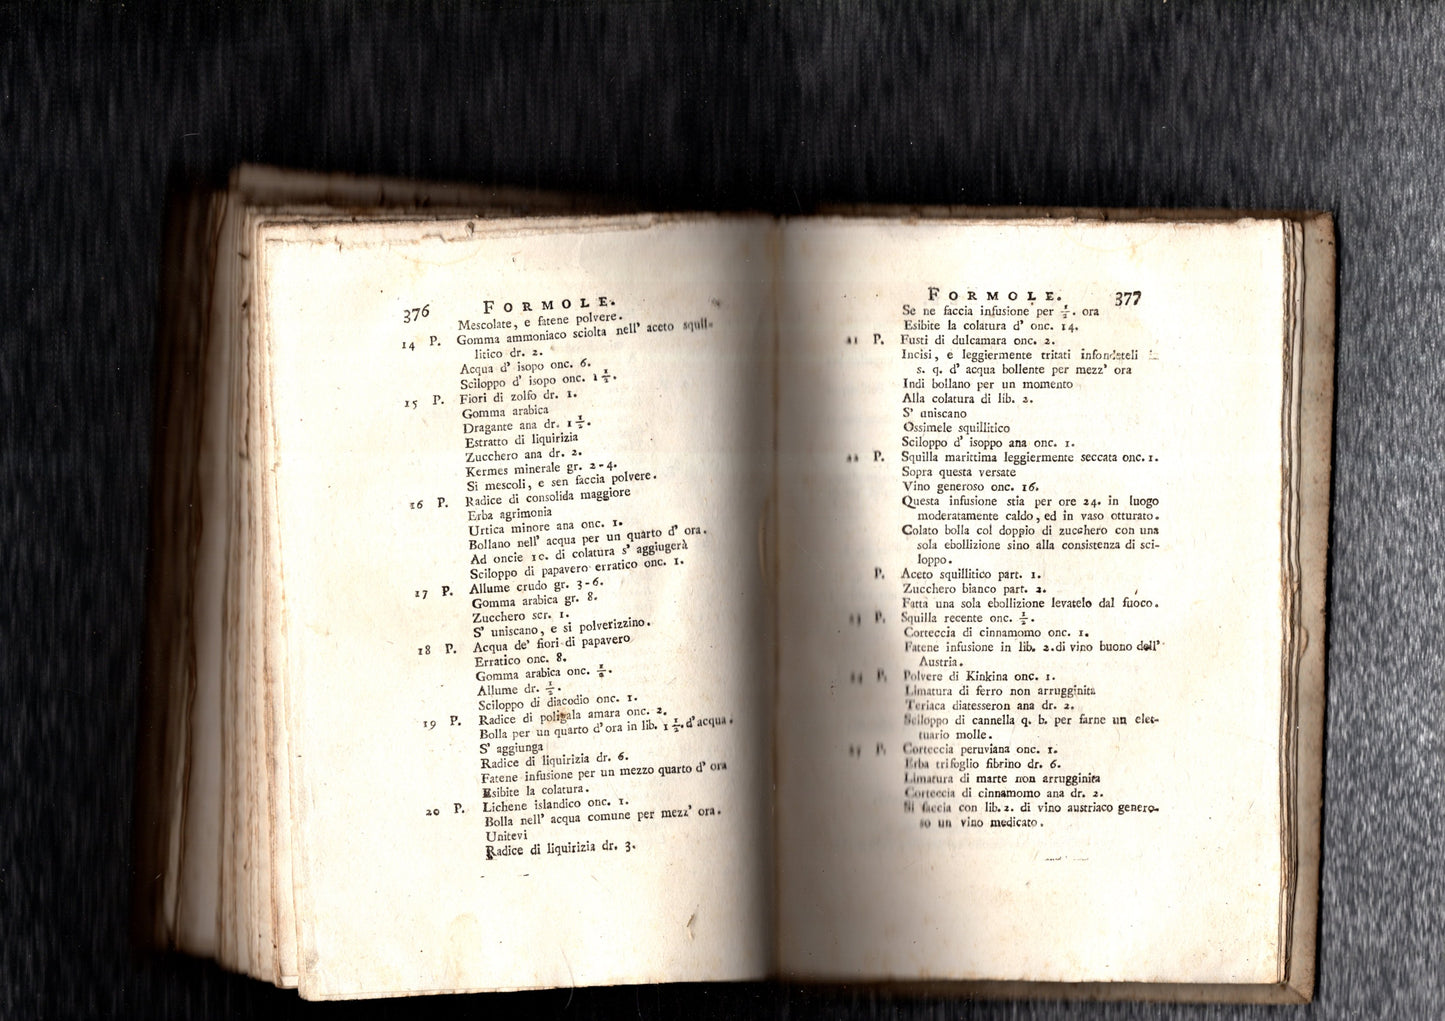 376 FORMOLE.
Mescolate, e fatene polvere.
14 P. Gomma ammoniaco sciolta nell' aceto squil-
litico dr. 2.
Acqua d' isopo onc. 6.
Sciloppo d' isopo onc. 1 1/2.
15 P. Fiori di zolfo dr. 1.
Gomma arabica
Dragante ana dr. 1 1/2.
Estratto di liquirizia
Zucchero ana dr. 2.
Kermes minerale gr. 2-4.
Si mescoli, e sen faccia polvere.
16 P. Radice di consolida maggiore
Erba agrimonia
Urtica minore ana onc. 1.
Bollano nell' acqua per un quarto d' ora.
Ad oncie 10. di colatura s' aggiugerà
Sciloppo di papavero erratico onc. 1.
17 P. Allume crudo gr. 3-6.
Gomma arabica gr. 8.
Zucchero scr. 1.
S' uniscano, e si polverizzino.
18 P. Acqua de' fiori di papavero
Erratico onc. 8.
Gomma arabica onc. 1/2.
Allume dr. 1/2.
Sciloppo di diacodio onc. 1.
19 P. Radice di poligala amara onc. 2.
Bolla per un quarto d' ora in lib. 1 1/2. d' acqua.
S' aggiunga
Radice di liquirizia dr. 6.
Fatene infusione per un mezzo quarto d' ora
Esibite la colatura.
20 P. Lichene islandico onc. 1.
Bolla nell' acqua comune per mezz' ora.
Unitevi
Radice di liquirizia dr. 3.
FORMOLE. 377
Se ne faccia infusione per 1/2. ora
Esibite la colatura d' onc. 14.
21 P. Fusti di dulcamara onc. 2.
Incisi, e leggiermente tritati infondeteli
s. q. d' acqua bollente per mezz' ora
Indi bollano per un momento
Alla colatura di lib. 2.
S' uniscano
Ossimele squillitico
Sciloppo d' isoppo ana onc. 1.
22 P. Squilla marittima leggiermente seccata onc. 1.
Sopra questa versate
Vino generoso onc. 16.
Questa infusione stia per ore 24. in luogo
moderatamente caldo, ed in vaso otturato.
Colato bolla col doppio di zucchero con una
sola ebollizione sino alla consistenza di sci-
loppo.
P. Aceto squillitico part. 1.
Zucchero bianco part. 2.
Fatta una sola ebollizione levatelo dal fuoco.
23 P. Squilla recente onc. 1/2.
Corteccia di cinnamomo onc. 1.
Fatene infusione in lib. 2. di vino buono dell'
Austria.
24 P. Polvere di Kinkina onc. 1.
Limatura di ferro non arrugginita
Teriaca diatesseron ana dr. 2.
Sciloppo di cannella q. b. per farne un elet-
tuario molle.
25 P. Corteccia peruviana onc. 1.
Erba trifoglio fibrino dr. 6.
Limatura di marte non arrugginita
Corteccia di cinnamomo ana dr. 2.
Si faccia con lib. 2. di vino austriaco genero-
so un vino medicato.